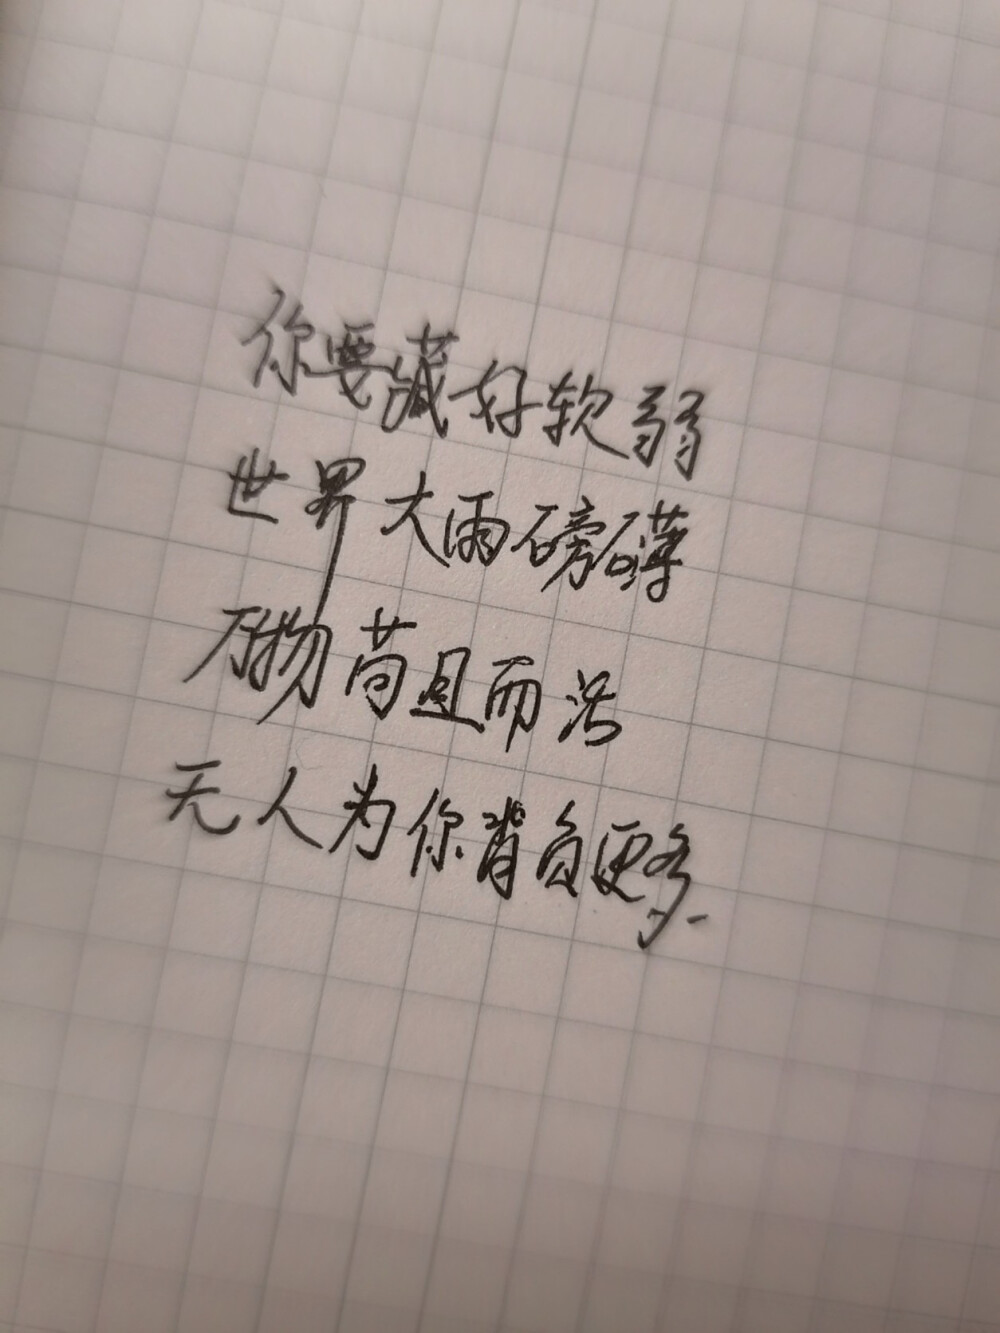 你要藏好软弱
世界大雨磅礴
万物苟且而活
无人为你背负更多